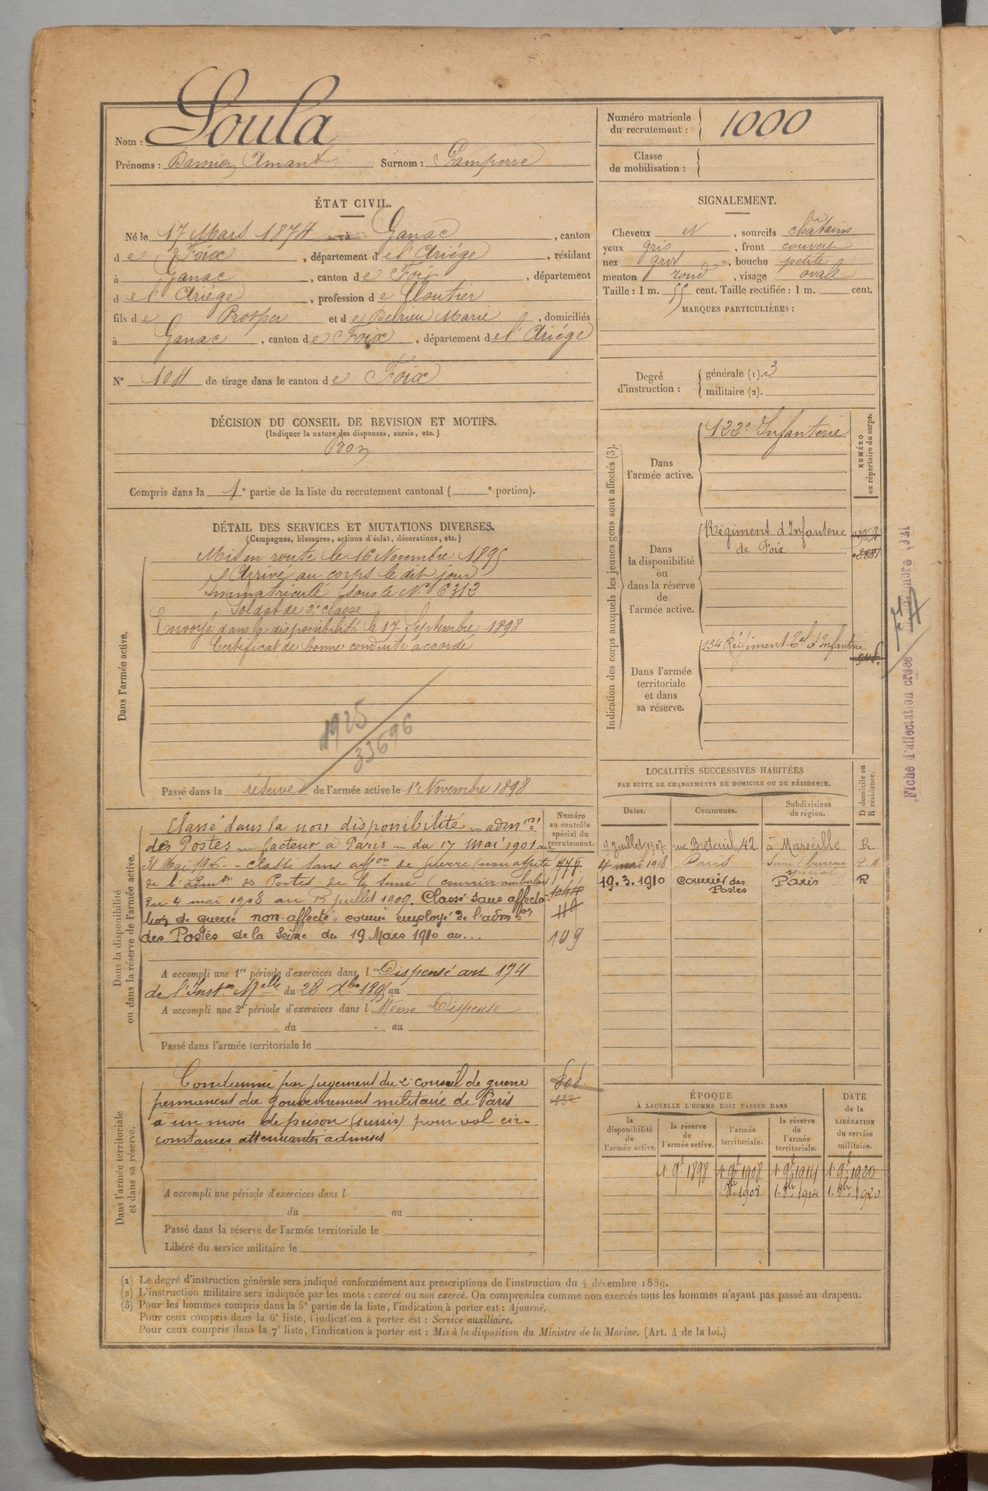 Nom : Soula
Prénoms : Amant Surnom :
Numéro matricule du recrutement : 1000
Classe de mobilisation :
ÉTAT CIVIL.
Né le 17 Mars 1874 à Ganac, canton
de Foix, département de l'Ariège, résidant
à Ganac, canton de Foix, département
de l'Ariège, profession de Cloutier
fils de Prosper et de Marie, domiciliés
à Ganac, canton de Foix, département de l'Ariège
N° 104 de tirage dans le canton de Foix
SIGNALEMENT.
Cheveux N, sourcils chatains
yeux gris, front couvert
nez gros, bouche petite
menton rond, visage ovale
Taille : 1 m. 55 cent. Taille rectifiée : 1 m. cent.
MARQUES PARTICULIÈRES :
Degré d'instruction : générale (1). 3
militaire (2).
DÉCISION DU CONSEIL DE REVISION ET MOTIFS.
(Indiquer la nature des dispenses, sursis, etc.)
Bon
Compris dans la 1e partie de la liste du recrutement cantonal ( e portion).
DÉTAIL DES SERVICES ET MUTATIONS DIVERSES.
(Campagnes, blessures, actions d'éclat, décorations, etc.)
Dans l'armée active.
Mis en route le 16 Novembre 1895
Arrivé au corps le dit jour
Immatriculé sous le N° 6312
Soldat de 2e classe
Envoyé dans la disponibilité le 17 Septembre 1898
Certificat de bonne conduite accordé
1925
33696
Passé dans la réserve de l'armée active le 1er Novembre 1898
Indication des corps auxquels les jeunes gens sont affectés (3).
NUMÉRO au répertoire du corps.
Dans l'armée active.
122e Infanterie
Dans la disponibilité ou dans la réserve de l'armée active.
Régiment d'Infanterie
de Foix
Dans l'armée territoriale et dans sa réserve.
134 Régiment Eal d'Infanterie
Fiche d'affectation
LOCALITÉS SUCCESSIVES HABITÉES
PAR SUITE DE CHANGEMENTS DE DOMICILE OU DE RÉSIDENCE.
Dates. Communes. Subdivisions de région. D domicile ou R résidence.
rue Breteuil, 42 à Marseille R.
Paris
19.3.1910 Courrier des Postes Paris R
Dans la disponibilité ou dans la réserve de l'armée active.
Numéro au contrôle spécial du recrutement.
Classé dans la non disponibilité adm on
des Postes facteur à Paris du 17 Mai 1901 au
31 Mai 1906 - Classé sans affon de guerre (non affecté
de l'admon des Postes de la Seine (courrier ambulant)
du 4 mai 1908 au 15 juillet 1909. Classé sans affecta-
tion de guerre non-affecté comme employé de l'admon
des Postes de la Seine du 19 Mars 1910 au...
109
A accompli une 1re période d'exercices dans l Dispensé art 174
de l'Inston Melle du 28 Xbre 1895 au
A accompli une 2e période d'exercices dans l Même Dispense
du au
Passé dans l'armée territoriale le
Dans l'armée territoriale et dans sa réserve.
Condamné par jugement du 2e conseil de guerre
permanent du gouvernement militaire de Paris
à un mois de prison (sursis) pour vol cir-
constances atténuantes admises
A accompli une période d'exercices dans l
du au
Passé dans la réserve de l'armée territoriale le
Libéré du service militaire le
ÉPOQUE
À LAQUELLE L'HOMME DOIT PASSER DANS
DATE de la LIBÉRATION du service militaire.
la disponibilité de l'armée active. la réserve de l'armée active. l'armée territoriale. la réserve de l'armée territoriale.
1. 9e 1898 1. 9e 1908 1. 9e 1914 1. 9e 1920
(1) Le degré d'instruction générale sera indiqué conformément aux prescriptions de l'instruction du 4 décembre 1889.
(2) L'instruction militaire sera indiquée par les mots : exercé ou non exercé. On comprendra comme non exercés tous les hommes n'ayant pas passé au drapeau.
(3) Pour les hommes compris dans la 5e partie de la liste, l'indication à porter est : Ajourné.
Pour ceux compris dans la 6e liste, l'indication à porter est : Service auxiliaire.
Pour ceux compris dans la 7e liste, l'indication à porter est : Mis à la disposition du Ministre de la Marine. (Art. 4 de la loi.)